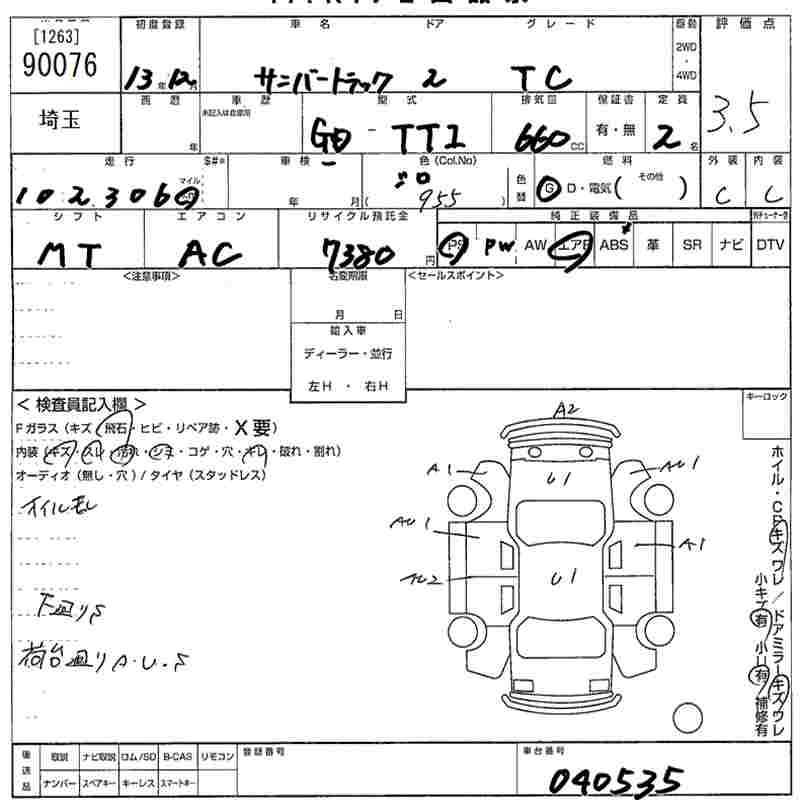 [1263]
90076
埼玉
初度登録
13 年 12 月
車名 ドア グレード
サンバートラック 2 TC
駆動
2WD
・
4WD
評価点
3.5
西暦
年
車歴
未記入は自家用
型式
GD - TT2
排気量
660 CC
保証書
有・無
定員
2 名
走行 S#※
102306
マイル
車検
年 月
色(Col.No)
955
色替
燃料
G D・電気( その他 )
外装
C
内装
C
シフト
MT
エアコン
AC
リサイクル預託金
7380 円
純正装備品
PS PW AW エアB ABS 革 SR ナビ
DTV
<注意事項>
名変期限
月 日
輸入車
ディーラー・並行
左H ・ 右H
<セールスポイント>
キーロック
<検査員記入欄>
Fガラス(キズ・飛石・ヒビ・リペア跡・X要)
内装(キズ・スレ・汚れ・シミ・コゲ・穴・キレ・破れ・割れ)
オーディオ(無し・穴)/タイヤ(スタッドレス)
オイルモレ
下廻りS
荷台廻りA.U.S
A2
A1
U1
AU1
AU1
A1
AU2
U1
ホイル・CPキズワレ/ドアミラーキズワレ
小キズ有 小U有 補修有
後送品
取説 ナビ取説 ロム/SD B-CAS リモコン
ナンバー スペアキー キーレス スマートキー
登録番号
車台番号
040535